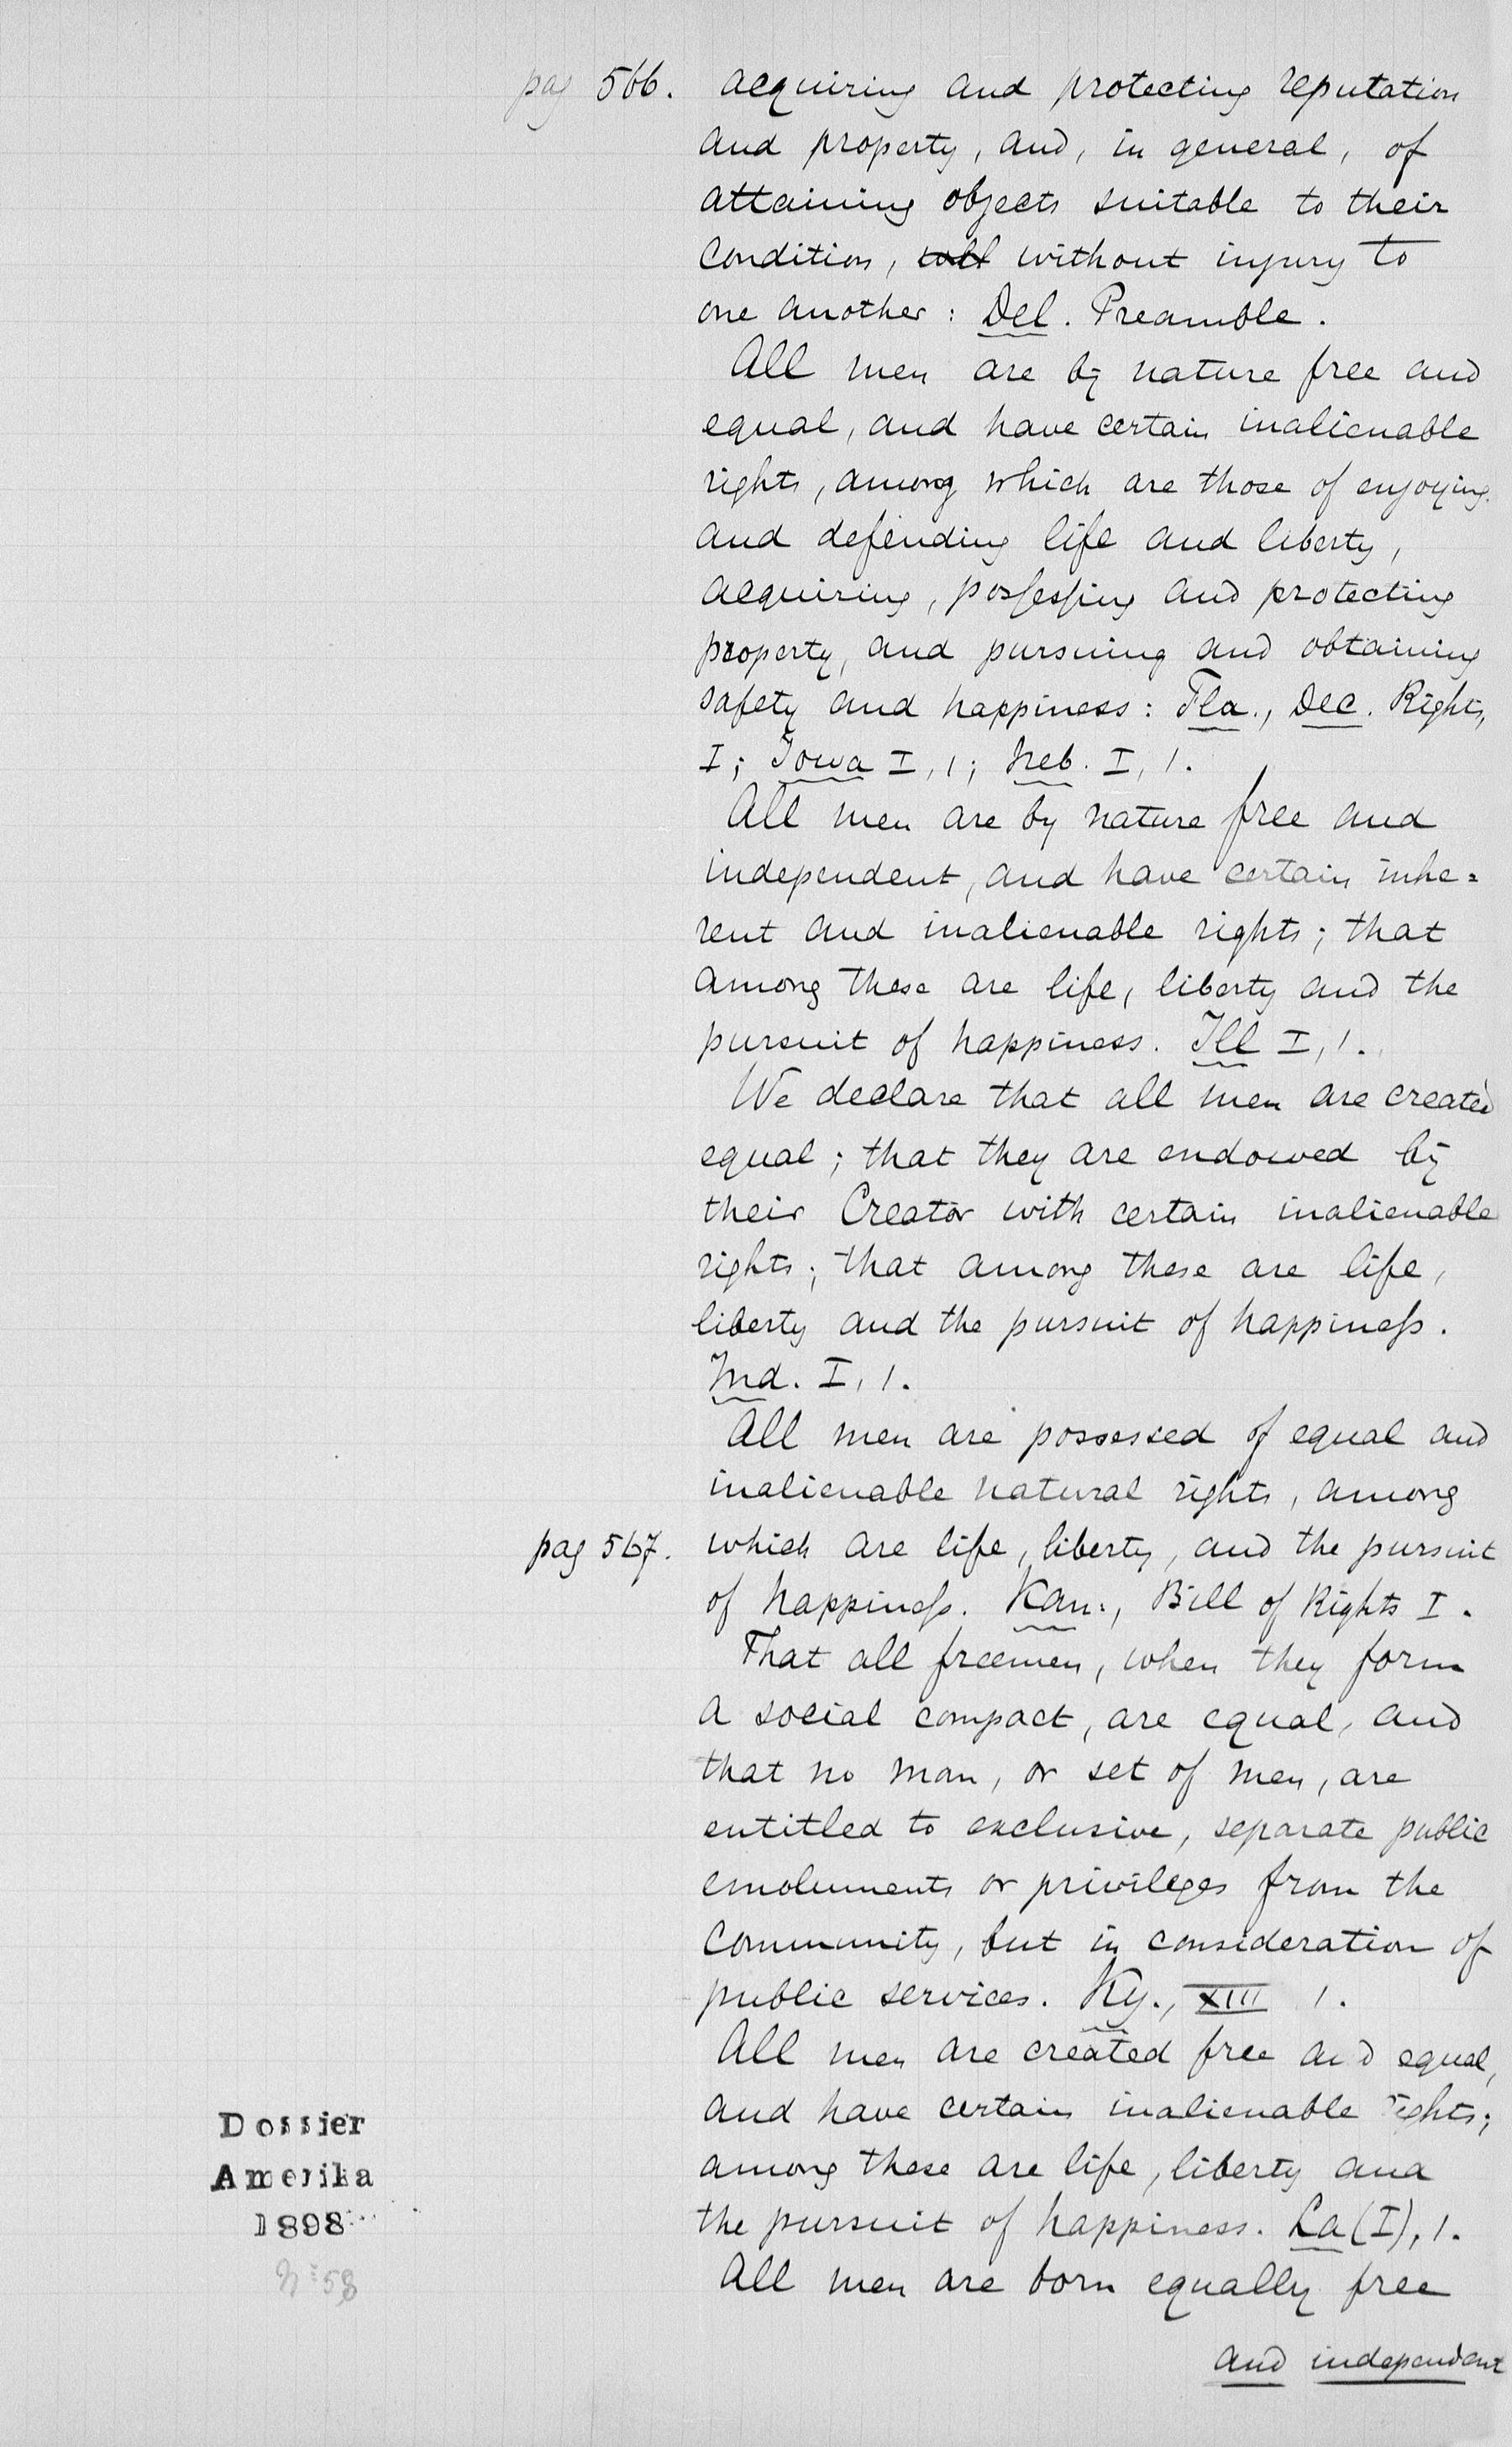 pag 566. acquiring and protecting reputation
and property, and, in general, of
attaining objects suitable to their
condition, without injury to
one another: Del. Preamble.
All men are by nature free and
equal, and have certain inalienable
rights, among which are those of enjoying
and defending life and liberty,
acquiring, possessing and protecting
property, and pursuing and obtaining
safety and happiness: Fla., Dec. Rights,
I; Iowa I, 1; Neb. I, 1.
All men are by nature free and
independent, and have certain inhe=
rent and inalienable rights; that
among these are life, liberty and the
pursuit of happiness. Ill I, 1.
We declare that all men are created
equal; that they are endowed by
their Creator with certain inalienable
rights; that among these are life,
liberty and the pursuit of happiness.
Ind. I, 1.
All men are possessed of equal and
inalienable natural rights, among
pag 567. which are life, liberty, and the pursuit
of happiness. Kan., Bill of Rights I.
That all freemen, when they form
a social compact, are equal, and
that no man, or set of men, are
entitled to exclusive, separate public
emoluments or privileges from the
community, but in consideration of
public services. Ky., XIII 1.
All men are created free and equal,
and have certain inalienable rights;
among these are life, liberty and
the pursuit of happiness. La (I), 1.
All men are born equally free
and independent
Dossier
Amerika
1898